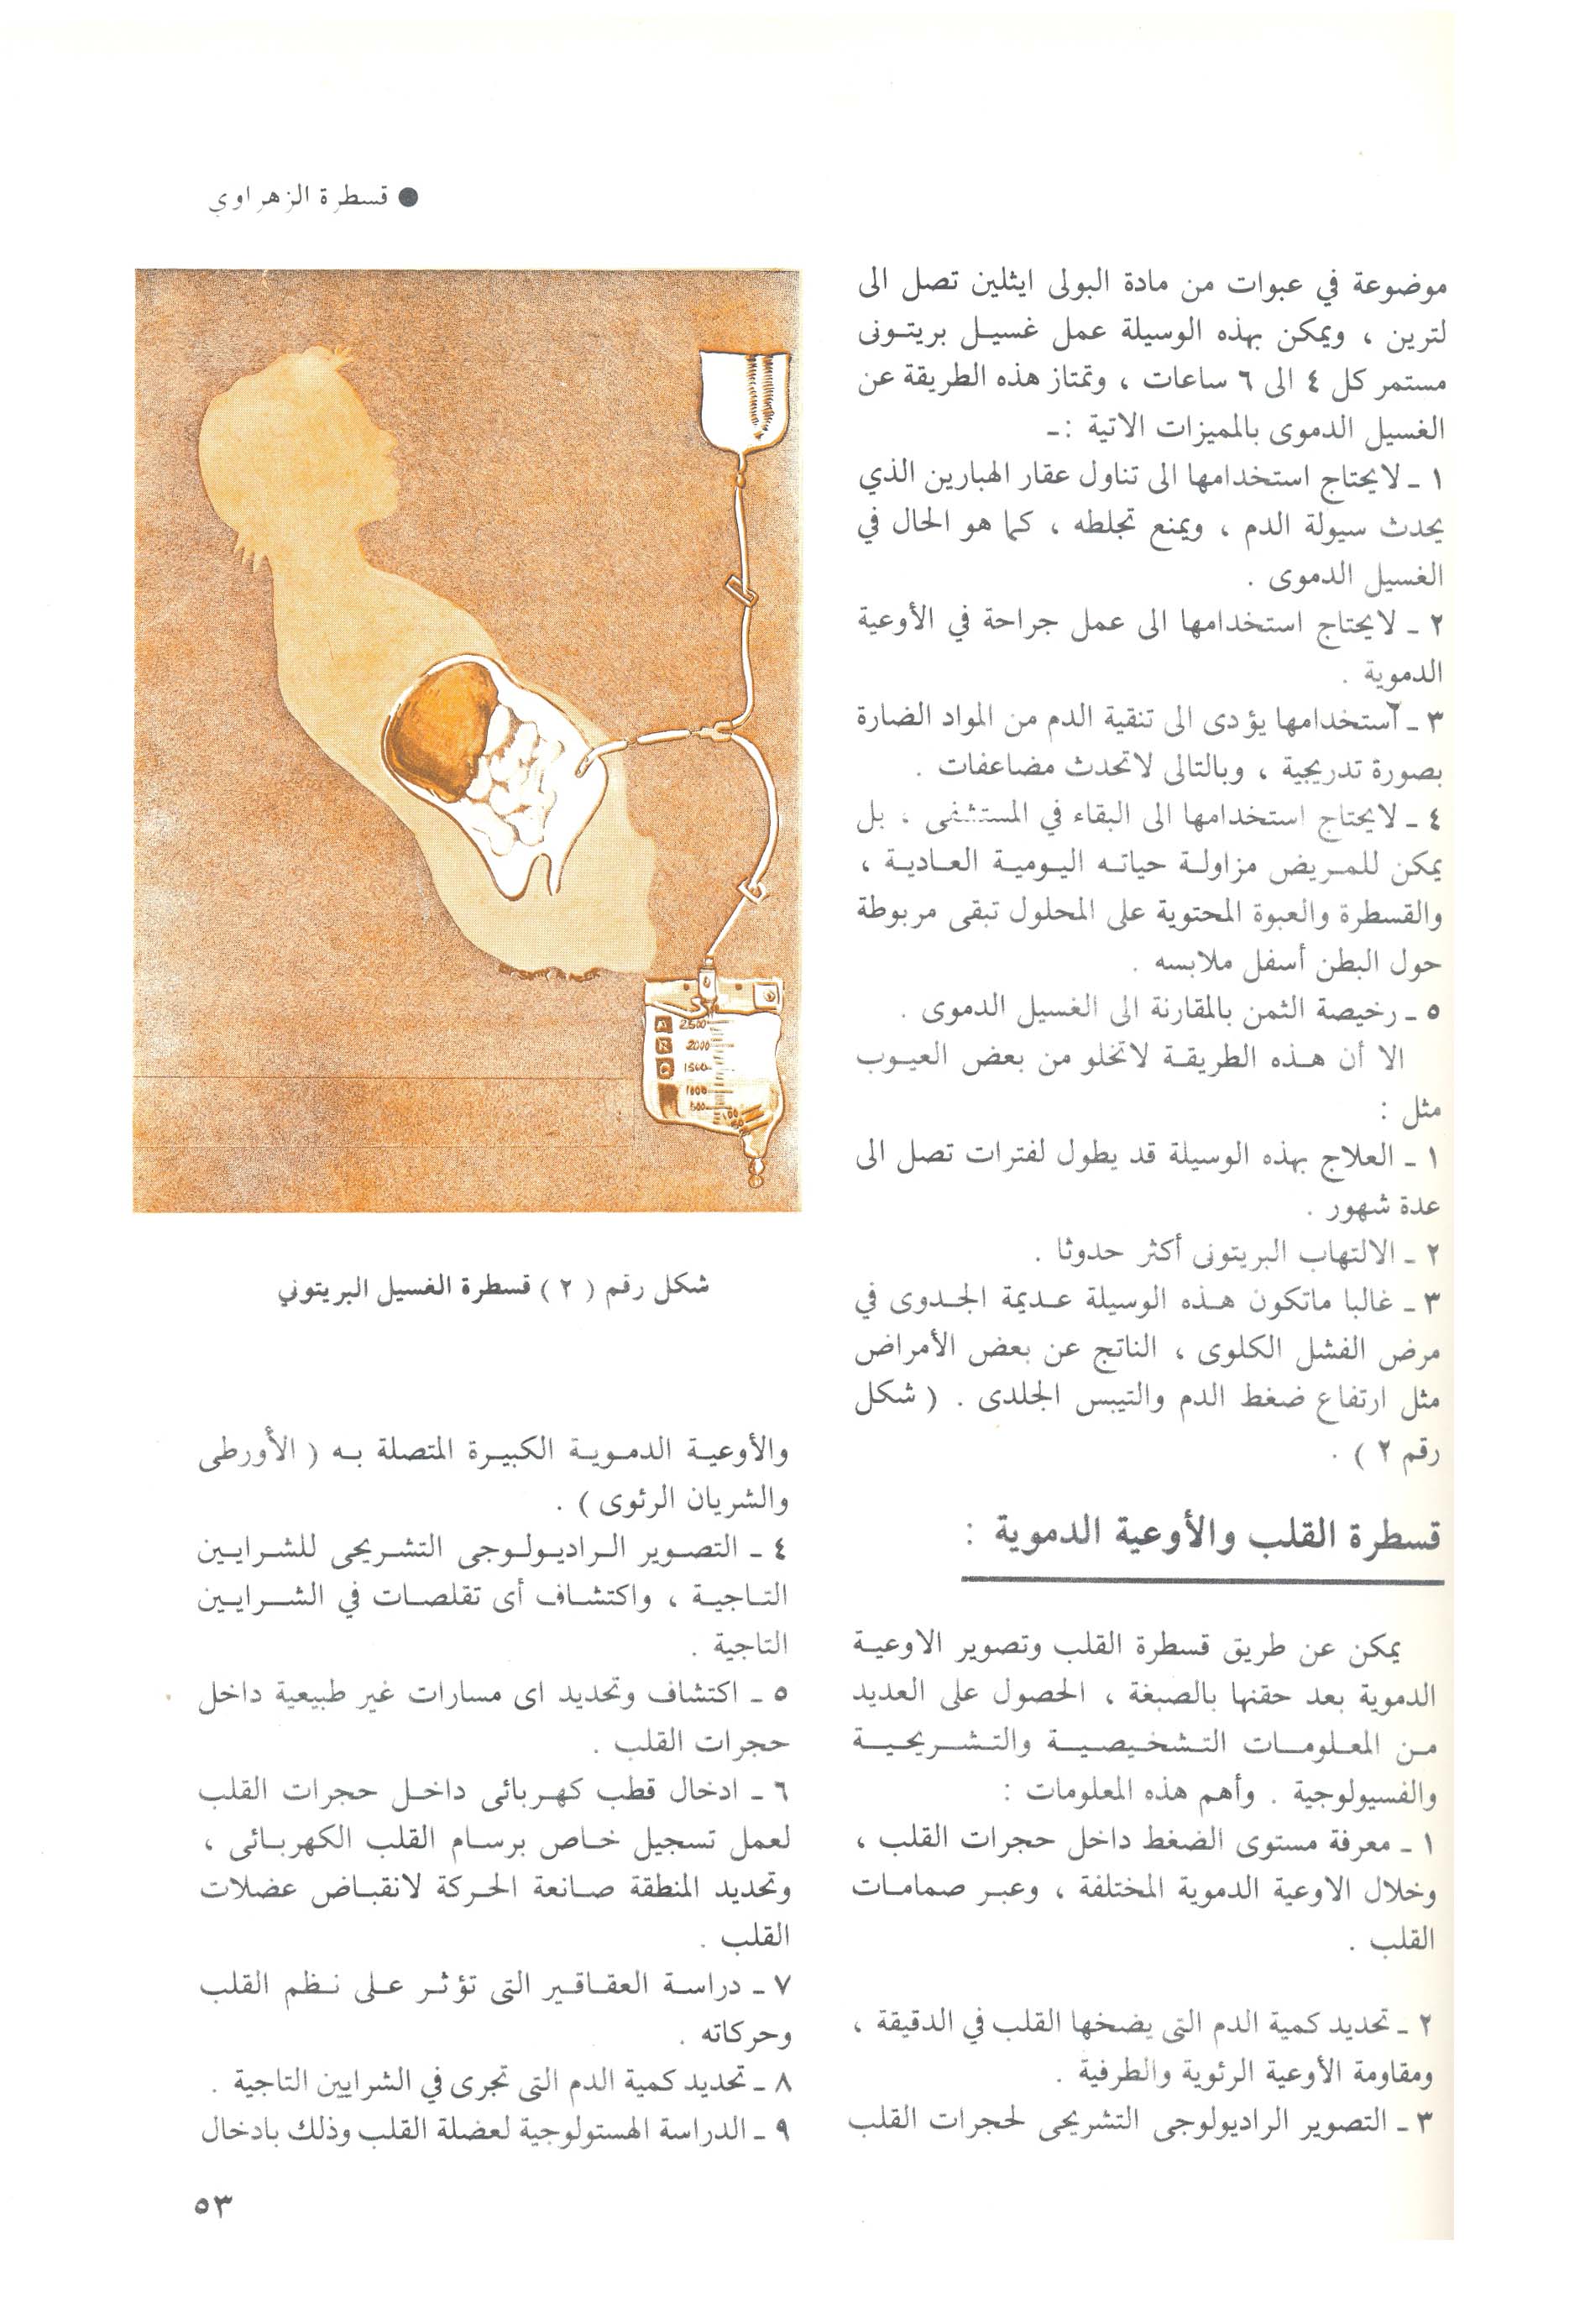 ● قسطرة الزهراوي
موضوعة في عبوات من مادة البولى ايثلين تصل الى
لترين ، ويمكن بهذه الوسيلة عمل غسيل بريتونى
مستمر كل ٤ الى ٦ ساعات ، وتمتاز هذه الطريقة عن
الغسيل الدموى بالمميزات الاتية :ـ
١ ـ لايحتاج استخدامها الى تناول عقار الهبارين الذي
يحدث سيولة الدم ، ويمنع تجلطه ، كما هو الحال في
الغسيل الدموى .
٢ ـ لايحتاج استخدامها الى عمل جراحة في الأوعية
الدموية .
٣ ـ آستخدامها يؤدى الى تنقية الدم من المواد الضارة
بصورة تدريجية ، وبالتالى لاتحدث مضاعفات .
٤ ـ لايحتاج استخدامها الى البقاء في المستشفى ، بل
يمكن للمريض مزاولة حياته اليومية العادية ،
والقسطرة والعبوة المحتوية على المحلول تبقى مربوطة
حول البطن أسفل ملابسه .
٥ ـ رخيصة الثمن بالمقارنة الى الغسيل الدموى .
الا أن هذه الطريقة لاتخلو من بعض العيوب
مثل :
١ ـ العلاج بهذه الوسيلة قد يطول لفترات تصل الى
عدة شهور .
٢ ـ الالتهاب البريتونى أكثر حدوثا .
٣ ـ غالبا ماتكون هذه الوسيلة عديمة الجدوى في
مرض الفشل الكلوى ، الناتج عن بعض الأمراض
مثل ارتفاع ضغط الدم والتيبس الجلدى . ( شكل
رقم ٢ ) .
قسطرة القلب والأوعية الدموية :
يمكن عن طريق قسطرة القلب وتصوير الاوعية
الدموية بعد حقنها بالصبغة ، الحصول على العديد
من المعلومات التشخيصية والتشريحية
والفسيولوجية . وأهم هذه المعلومات :
١ ـ معرفة مستوى الضغط داخل حجرات القلب ،
وخلال الاوعية الدموية المختلفة ، وعبر صمامات
القلب .
٢ ـ تحديد كمية الدم التى يضخها القلب في الدقيقة ،
ومقاومة الأوعية الرئوية والطرفية .
٣ ـ التصوير الراديولوجى التشريحى لحجرات القلب
A 2500
B 2000
C 1500
1000
500
100
شكل رقم ( ٢ ) قسطرة الغسيل البريتوني
والأوعية الدموية الكبيرة المتصلة به ( الأورطى
والشريان الرئوى ) .
٤ ـ التصوير الراديولوجى التشريحى للشرايين
التاجية ، واكتشاف أى تقلصات في الشرايين
التاجية .
٥ ـ اكتشاف وتحديد اى مسارات غير طبيعية داخل
حجرات القلب .
٦ ـ ادخال قطب كهربائى داخل حجرات القلب
لعمل تسجيل خاص برسام القلب الكهربائى ،
وتحديد المنطقة صانعة الحركة لانقباض عضلات
القلب .
٧ ـ دراسة العقاقير التى تؤثر على نظم القلب
وحركاته .
٨ ـ تحديد كمية الدم التى تجرى في الشرايين التاجية .
٩ ـ الدراسة الهستولوجية لعضلة القلب وذلك بادخال
٥٣